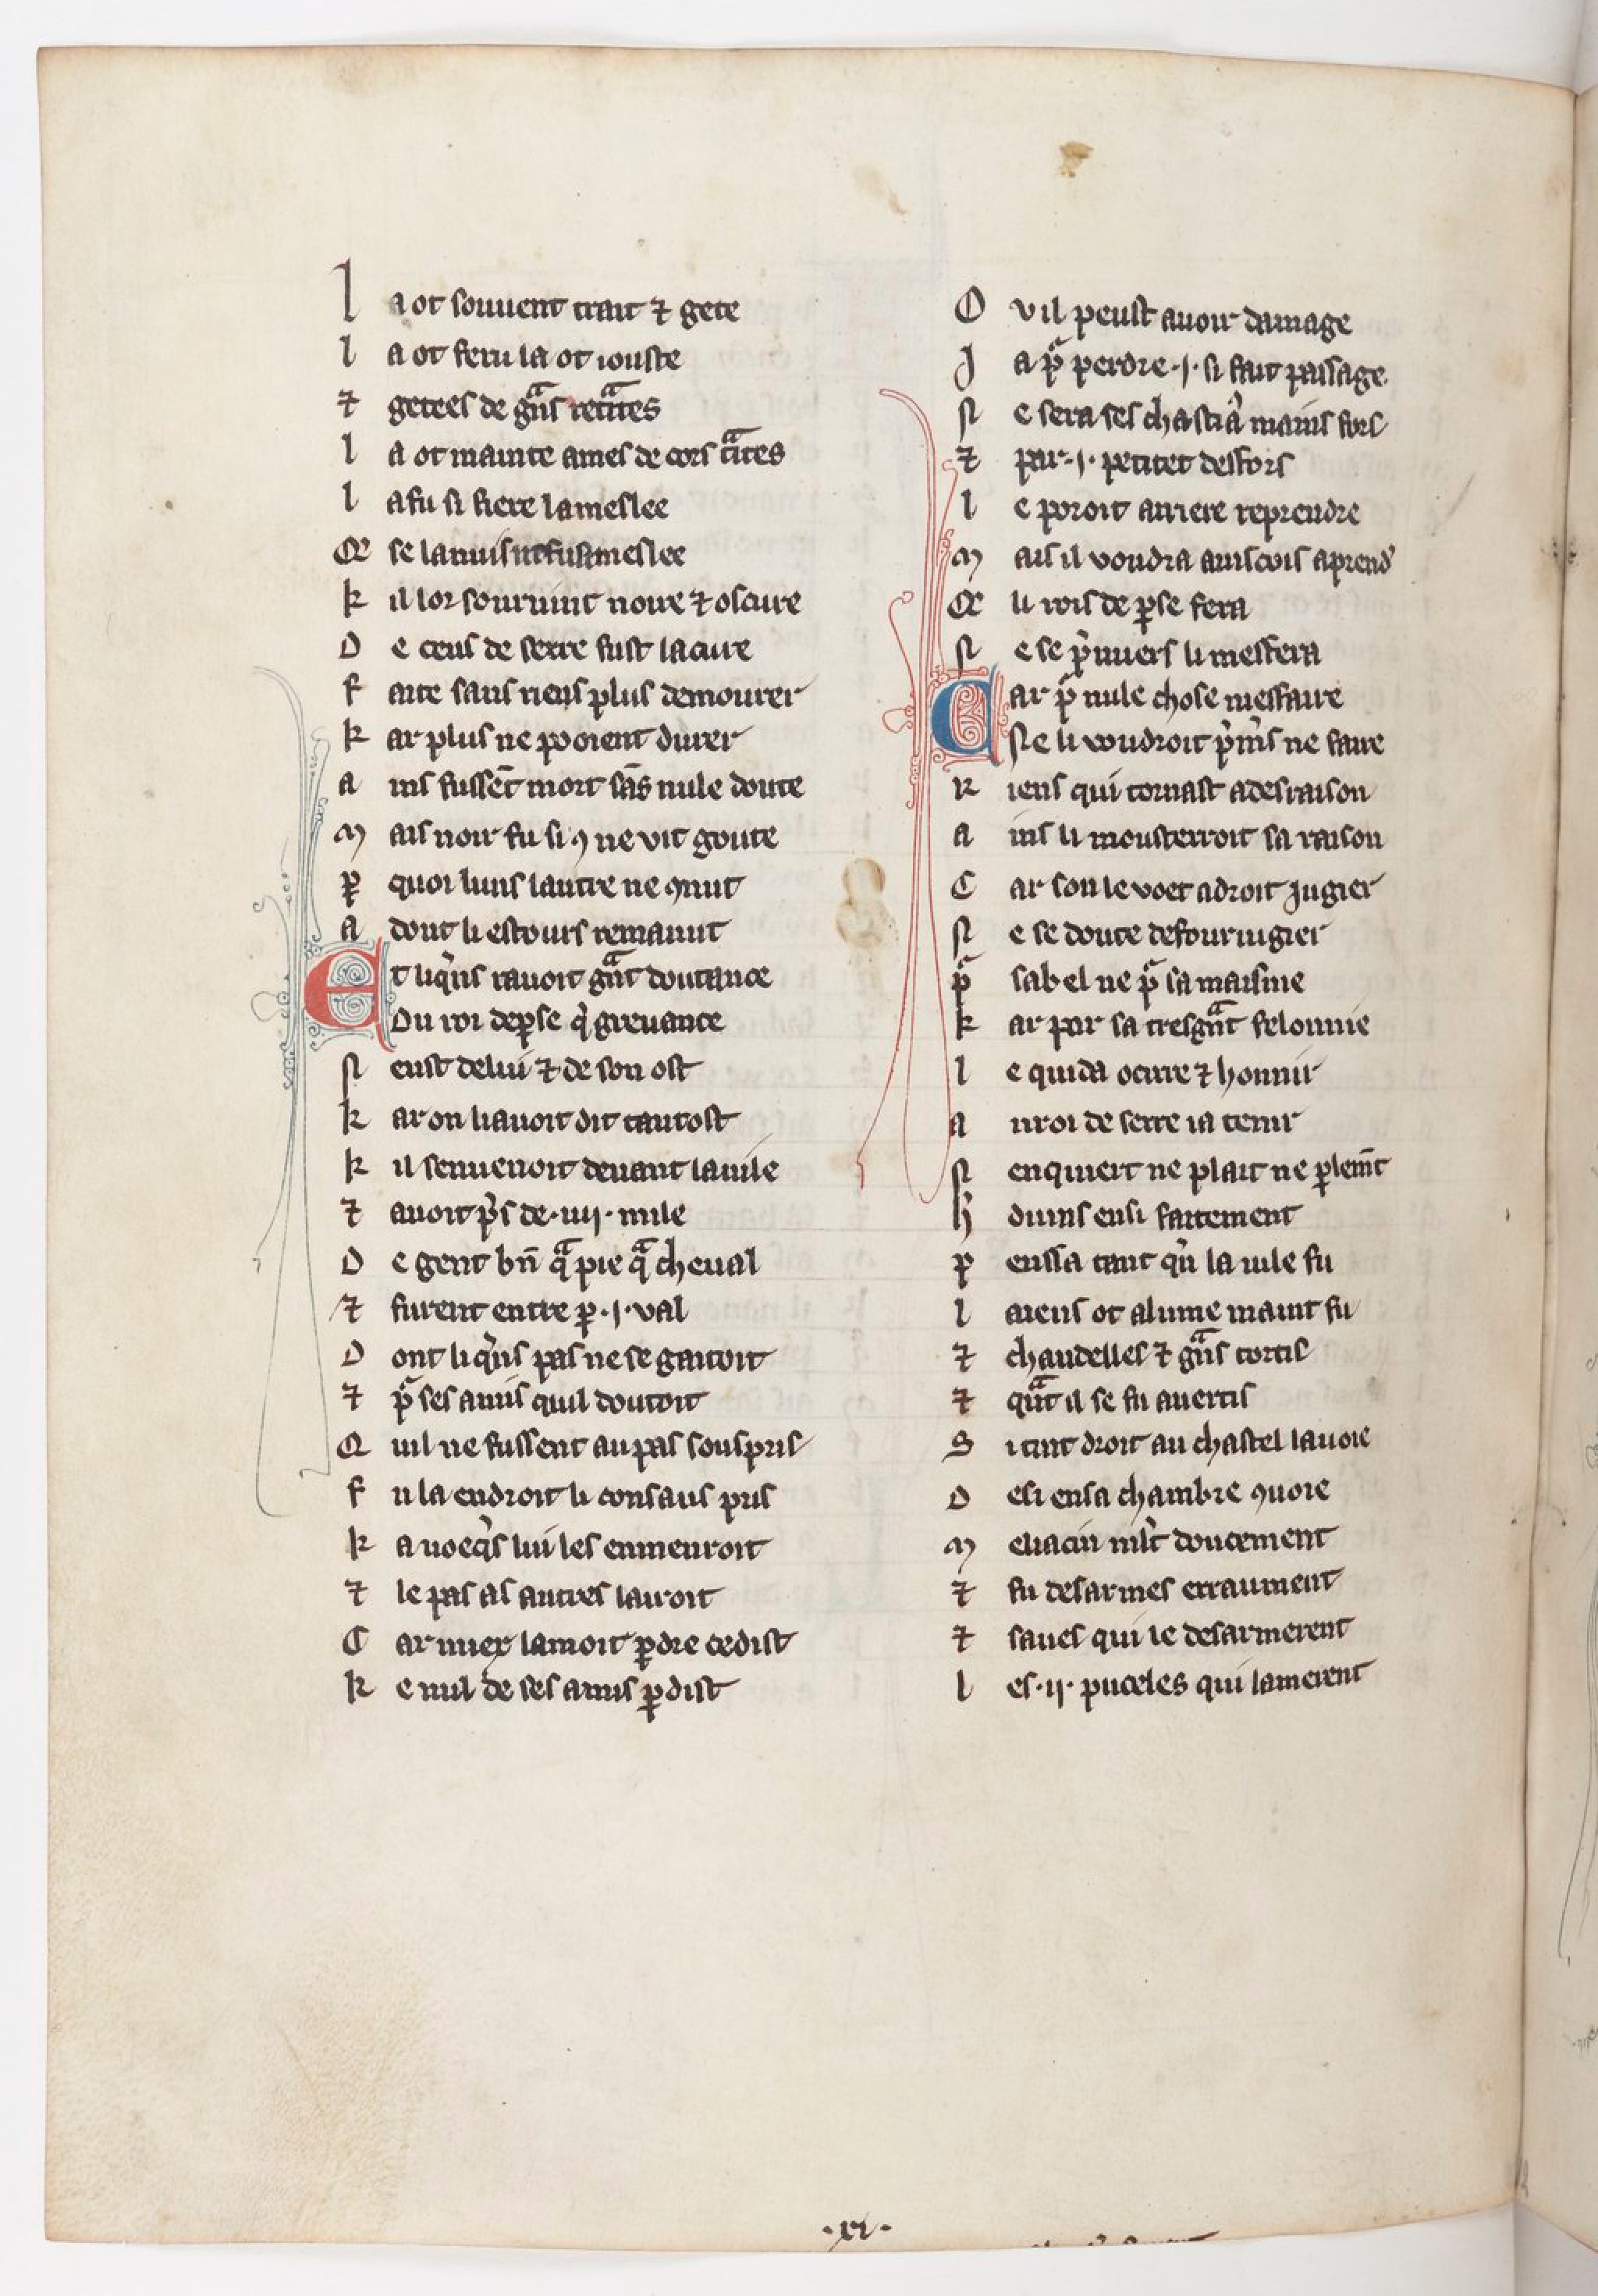 l a ot souuent trait ⁊ gete
l a ot feru la ot iouste
⁊ getees de gͣns retͣites
l a ot mainte ames de cors tͣites
l a fu si fiere la meslee
Q̄ se la nuis ne fust meslee
k il lor souruint noire ⁊ oscure
D e ceus de serre fust la cure
f aite sans riens plus demourer
k ar plus ne pooient durer
a ins fussēt mort sās nule doute
m ais noir fu si ꝯ ne vit goute
ꝑ quoi luns lautre ne ꝯnut
a dont li estours remanut
Et liqͥns rauoit gͣnt doutance
Du roi de ꝑse q̓ greuance
N eust de lui ⁊ de son ost
k ar on li auoit dit tantost
k il senuenoit deuant la uile
⁊ auoit pͥs de .iiij. mile
D e gent bn̄ qͣ pie qͣ cheual
⁊ furent entre ꝑ .j. val
D ont liqͥns pas ne se gaitoit
⁊ pͬ ses amis quil doutoit
Q uil ne fussent au pas souspris
f u la endroit li consaus pris
k auoecq̓s lui les enmenroit
⁊ le pas as autres lairoit
C ar miex lamoit ꝑdre ce dist
k e nul de ses amis ꝑdist
O v il peust auoir damage
J a pͬ perdre .j. si fait passage
N e sera ses chastiaͯ mains fors
⁊ par .j. petitet desfors
l e poroit arriere reprendre
m ais il voudra anscois aprendͬ
Q̄ li rois de ꝑse fera
N e se pͥmiers li mesfera
Car pͬ nule chose mesfaire
Ne li voudroit pͥmͥs ne faire
R iens qui tornast a desraison
a ins li mousterroit sa raison
C ar son le voet a droit jugier
N e se doute de fouriugier
pͬ sabel ne pͬ sa maisnie
k ar par sa tresgͣnt felonnie
l e quida ocirre ⁊ honnir
a u roi de serre ia tenir
N en quiert ne plait ne ꝑlemt̄
h̓ duins ensi faitement
p enssa tant qͥn la uile fu
l aiens ot alume maint fu
⁊ chandelles ⁊ gͣns tortis
⁊ qͣnt il se fu auertis
S i tint droit au chastel la uoie
D esi en sa chambre ꝯuoie
m eliacin ml̓t doucement
⁊ fu desarmes erraument
⁊ saues qui le desarmerent
l es .ij. puceles qui lamerent
.xi.